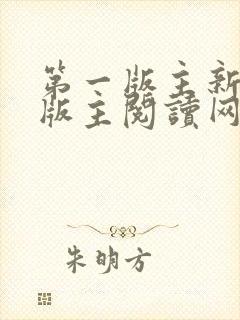 第一版主新
版主閱讀网
朱明方